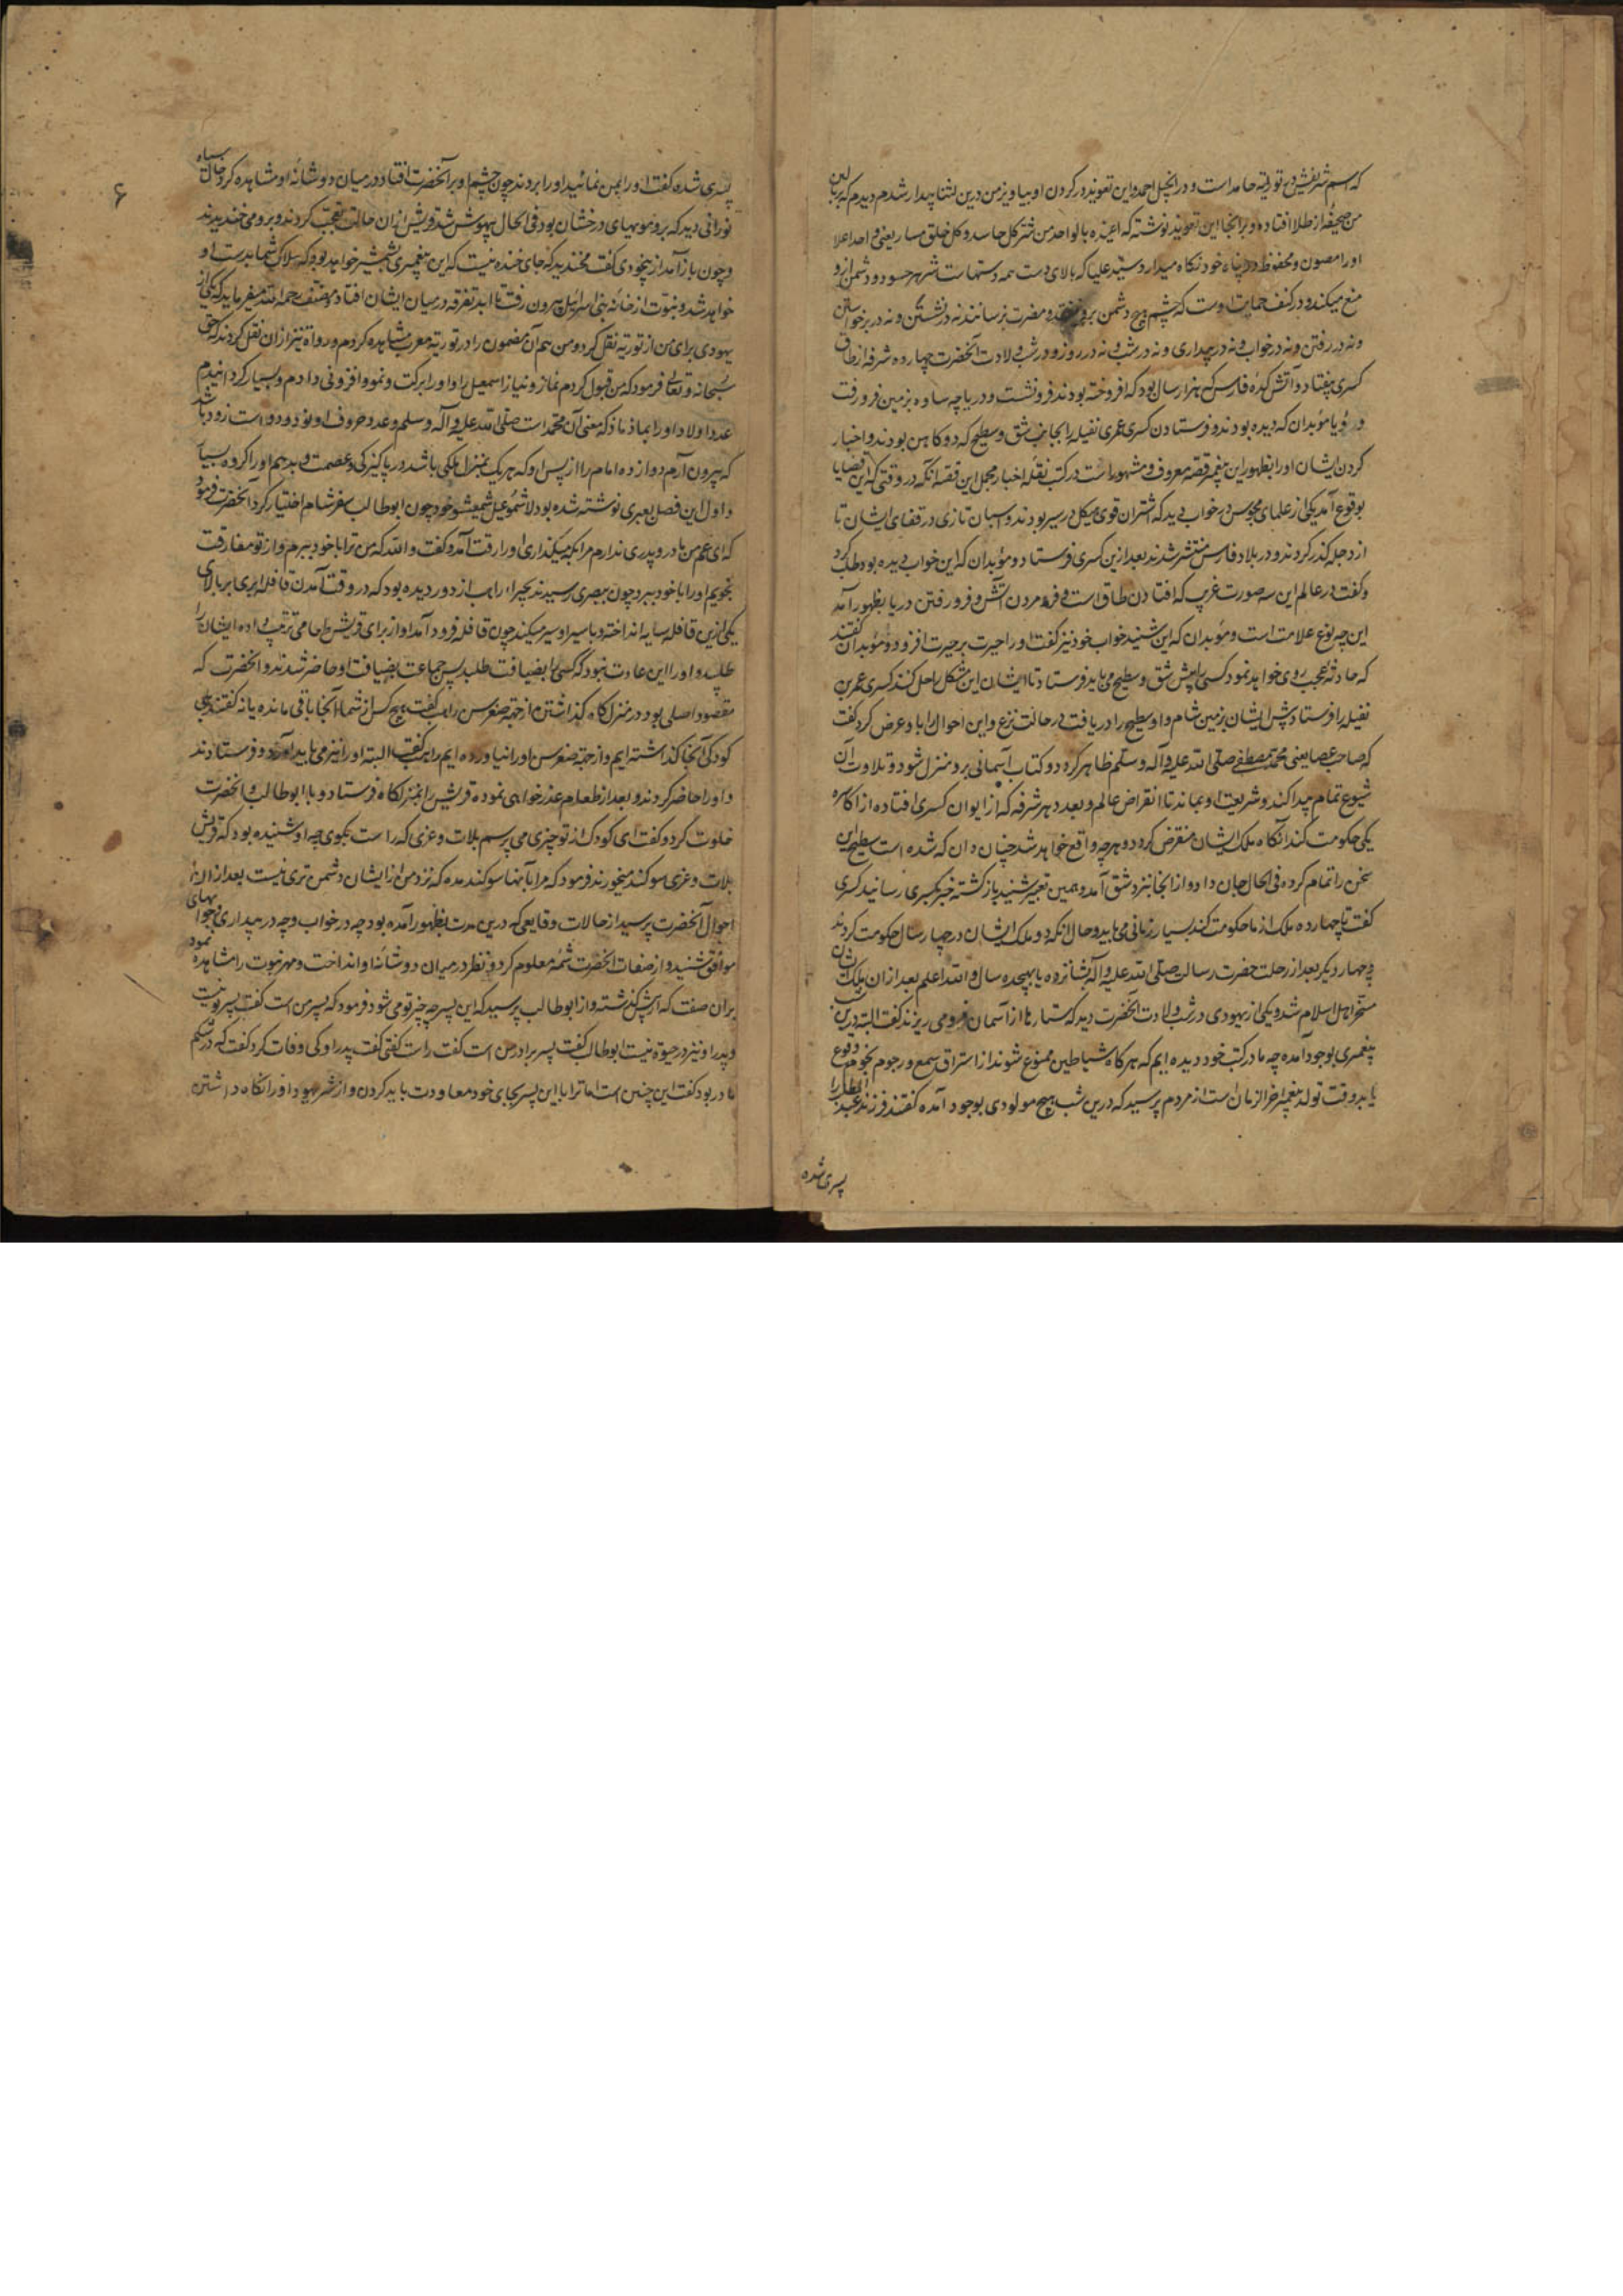 که اسم شریفش در توریة حامد است و در انجیل احمد و این تعویذ در کردن او بیاویز من درین اثنا بیدار شدم دیدم که بر بالین
من صحیفهٔ از طلا افتاده و بر آنجا این تعویذ نوشته که اعیذه بالواحد من شر کل حاسد و کل خلق مارد یعنی واحد اعلا
او را مصون و محفوظ در پناه خود نکاه میدارد و ستد علیا که بالای دست همه دستهاست شر هر حسود و دشمن ازو
منع میکند و در کنف حمایت اوست که چشم هیچ دشمن برو نیفتد و مضرت نرسانند نه در نشستن و نه در برخواستن
و نه در رفتن و نه در خواب و نه در بیداری و نه در شب و نه در روز و در شب ولادت آنحضرت چهارده شرفه از طاق
کسری بیفتاد و آتش کدهٔ فارس که هزار سال بود که افروخته بودند فرو نشست و دریاچه ساوه بزمین فرو رفت
و رؤیا موبدان که دیده بودند و فرستادن کسری عمری نفیله را بجانب شق و سطیح که دو کاهن بودند و اخبار
کردن ایشان او را بظهور این پیغمبر قصهٔ معروف و مشهور است در کتب نقلهٔ اخبار مجمل این قصه انکه در وقتی که این قضایا
بوقوع آمد یکی از علمای مجوس در خواب دید که اشتران قوی هیکل در سیر بودند و اسبان تازی در قفای ایشان تا
از دجله کذر کردند و در بلاد فارس منتشر شدند بعد ازین کسری فرستاد و موبدان که این خواب دیده بود طلب کرد
و کفت در عالم این سه صورت غریب که افتادن طاق است و فرو مردن آتش و فرو رفتن دریا بظهور آمد
این چه نوع علامت است و موبدان که این شنید خواب خود نیز کفت او را حیرت بر حیرت افزود و موبدان کفتند
که حادثهٔ عجب روی خواهد نمود کسی را پیش شق و سطیح می باید فرستاد تا ایشان این مشکل را حل کنند کسری عمر بن
نفیله را فرستاد پیش ایشان بزمین شام و او سطیح را دریافت در حالت نزع و این احوال را باو عرض کرد کفت
که صاحب عصا یعنی محمد مصطفی صلی الله علیه و آله و سلم ظاهر کردد و کتاب آسمانی برو منزل شود و تلاوت آن
شیوع تمام پیدا کند و شریعت او بماند تا انقراض عالم و بعدد هر شرفه که از ایوان کسری افتاده از اکاسره
یکی حکومت کند انکاه ملک ایشان منقرض کردد و هر چه واقع خواهد شد چنان دان که شده است سطیح این
سخن را تمام کرده فی الحال جان داد و از انجا نیز دشق آمد و همین تعبیر شنید بازکشته خبر بکسری رسانید کسری
کفت تا چهارده ملک از ما حکومت کند بسیار زمانی می باید و حال انکه ده ملک ایشان در چهار سال حکومت کردند
و چهار دیکر بعد از رحلت حضرت رسالت صلی الله علیه و آله بشانزده یا بهجده سال و الله اعلم بعد ازان ملک ایشان
مسخر اهل اسلام شد و یکی از یهودی در شب ولادت آنحضرت دید که ستارها از آسمان فرو می ریزند کفت البته درین شب
پیغمبری بوجود آمده چه ما در کتب خود دیده ایم که هر کاه شیاطین ممنوع شوند از استراق سمع و رجوم نجوم وقوع
یابد وقت تولد پیغمبر آخر الزمان است از مردم پرسید که درین شب هیچ مولودی بوجود آمده کفتند فرزند عبد المطلب را
پسری شده
۶
پسری شده کفت او را بمن نمائید او را بردند چون چشم او بر آنحضرت افتاد و در میان دو شانهٔ او مشاهده کرد خال سیاه
نورانی دید که برو مویهای درخشان بود فی الحال بیهوش شد قریش ازان حالت تعجب کردند و برو می خندیدند
و چون باز آمد از بیخودی کفت مخندید که جای خنده نیست که این پیغمبری بشمشیر خواهد بود که هلاک شما بدست او
خواهد شد و نبوت از خانهٔ بنی اسرائیل بیرون رفت تا ابد تفرقه در میان ایشان افتاد مؤلف رحمه الله میفرماید که یکی از
یهودی برای من از توریة نقل کرد و من هم آن مضمون را در توریة معرب مشاهده کردم و رواة نیز ازان نقل کردند که حق
سبحانه و تعالی فرمود که من قبول کردم نماز و نیاز اسمعیل را و او را برکت و نمو و افزونی دادم و بسیار کردانیدم
عدد اولاد او را بماذ ماذ که معنی آن محمد است صلی الله علیه و آله و سلم و عدد حروف او نود و دو است زود باشد
که بیرون آرم دوازده امام را از پس او که هر یک بمنزلهٔ ملکی باشد در پاکیزکی و عصمت و بدهم او را کروه بسیار
و اول این فصل بعبری نوشته شده بود لاشموعیل شمعیشو خود چون ابو طالب سفر شام اختیار کرد آنحضرت فرمود
که ای عم من مادر و پدری ندارم مرا بکه میکذاری او را رقت آمد و کفت و الله که من ترا با خود ببرم و از تو مفارقت
نجویم او را با خود ببرد چون ببصری رسیدند بحیرا راهب از دور دیده بود که در وقت آمدن قافله ابری بر بالای
یکی ازین قافله سایه انداخته و با سیر او سیر میکند چون قافله فرود آمد او از برای قریش طعامی ترتیب داده ایشان را
طلبید و او را این عادت نبود که کسی را بضیافت طلبد پس جماعت بضیافت او حاضر شدند و آنحضرت که
مقصود اصلی بود در منزل کاه کذاشتن از جهة صغر سن راهب کفت هیچ کس از شما آنجا باقی مانده یا نه کفتند بلی
کودکی آنجا کذاشته ایم و از جهة صغر سن او را نیاورده ایم راهب کفت البته او را نیز می باید آورد و فرستادند
و او را حاضر کردند و بعد از طعام عذر خواهی نموده قریش را بمنزلکاه فرستاد و با ابو طالب و آنحضرت
خلوت کرد و کفت ای کودک از تو چیزی می پرسم بلات و عزی که راست بکوی چه او شنیده بود که قریش
بلات و عزی سوکند میخورند فرمود که مرا بآنها سوکند مده که نزد من از ایشان دشمن تری نیست بعد ازان
احوال آنحضرت پرسید از حالات و قایعی که درین مدت بظهور آمده بود چه در خواب و چه در بیداری و جوابهای
موافق شنید و از صفات آنحضرت شمهٔ معلوم کرد و نظر در میان دو شانهٔ او انداخت و مهر نبوت را مشاهده نمود
بران صفت که از پیش کذشته و از ابو طالب پرسید که این پسر چه چیز تو می شود فرمود که پسر من است کفت پسر تو نیست
و پدر او نیز در حیوة نیست ابو طالب کفت پسر برادر من است کفت راست کفتی کفت پدر او کی وفات کرد کفت که در شکم
مادر بود کفت این چنین است اما ترا با این پسر بجای خود معاودت باید کردن و از شر یهود او را نکاه داشتن